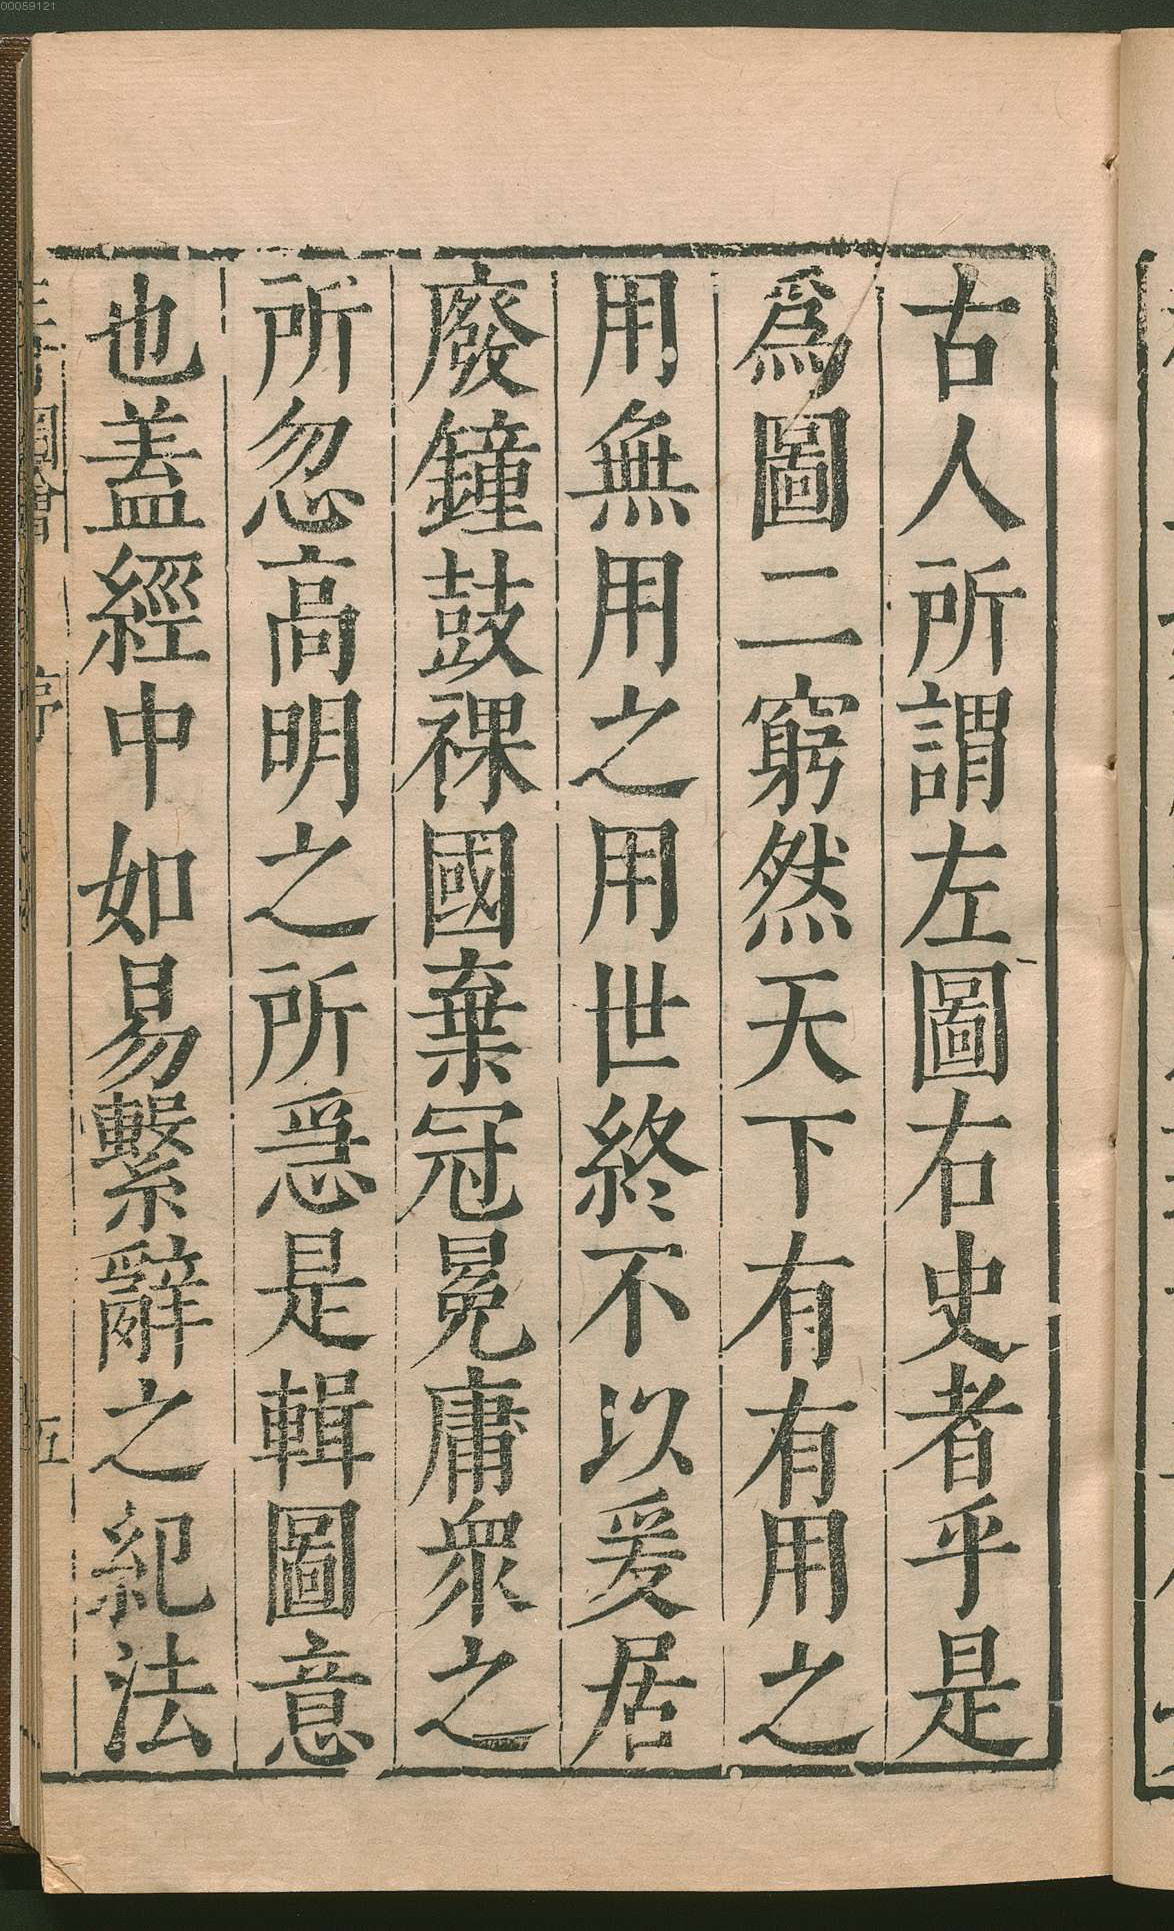 古人所謂左圖右史者乎是
爲圖二窮然天下有有用之
用無用之用世終不以爰居
廢鐘鼓裸國棄冠冕庸衆之
所忽高明之所急是輯圖意
也葢經中如易繫辭之紀法
圖會
序
五
00059121